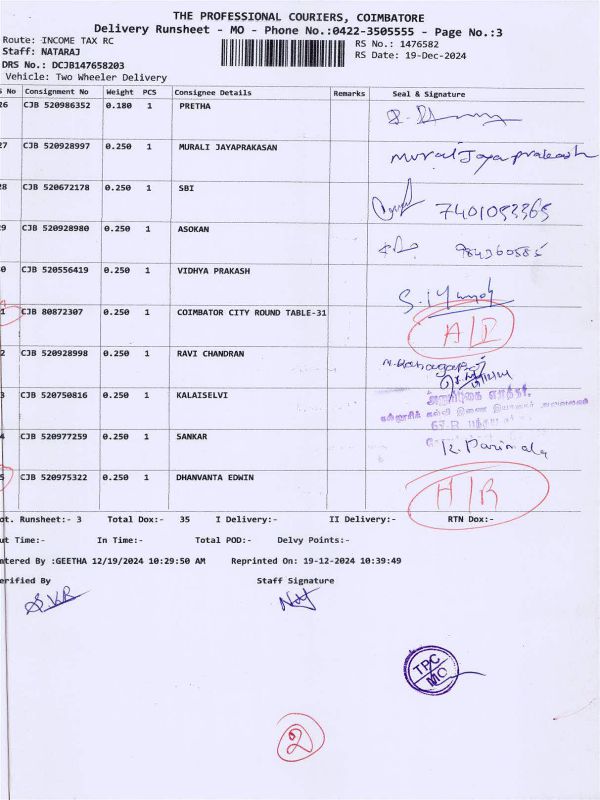 THE PROFESSIONAL COURIERS, COIMBATORE
Delivery Runsheet - MO - Phone No.:0422-3505555 - Page No.:3
Route: INCOME TAX RC
RS No.: 1476582
Staff: NATARAJ
RS Date: 19-Dec-2024
DRS No.: DCJB147658203
Vehicle: Two Wheeler Delivery
No Consignment No Weight PCS Consignee Details Remarks Seal & Signature
26 CJB 520986352 0.180 1 PRETHA
27 CJB 520928997 0.250 1 MURALI JAYAPRAKASAN Murali Jaya prakash
28 CJB 520672178 0.250 1 SBI 7401053365
29 CJB 520928980 0.250 1 ASOKAN
0 CJB 520556419 0.250 1 VIDHYA PRAKASH
1 CJB 80872307 0.250 1 COIMBATOR CITY ROUND TABLE-31 A/I
2 CJB 520928998 0.250 1 RAVI CHANDRAN
3 CJB 520750816 0.250 1 KALAISELVI
4 CJB 520977259 0.250 1 SANKAR R. Parimala
5 CJB 520975322 0.250 1 DHANVANTA EDWIN H/R
ot. Runsheet:- 3 Total Dox:- 35 I Delivery:- II Delivery:- RTN Dox:-
ut Time:- In Time:- Total POD:- Delvy Points:-
ntered By :GEETHA 12/19/2024 10:29:50 AM Reprinted On: 19-12-2024 10:39:49
erified By Staff Signature
TPC
MO
2